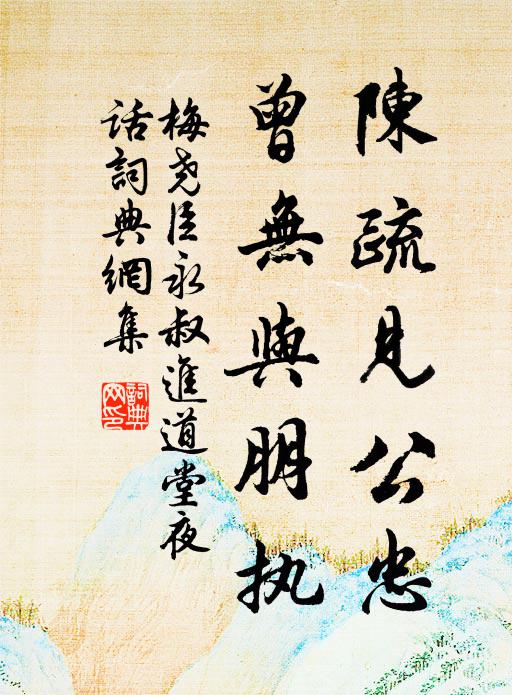 陳疏見公忠
曾無與朋执
梅尧臣永叔進道堂夜
话詞典網集
詞典
网印